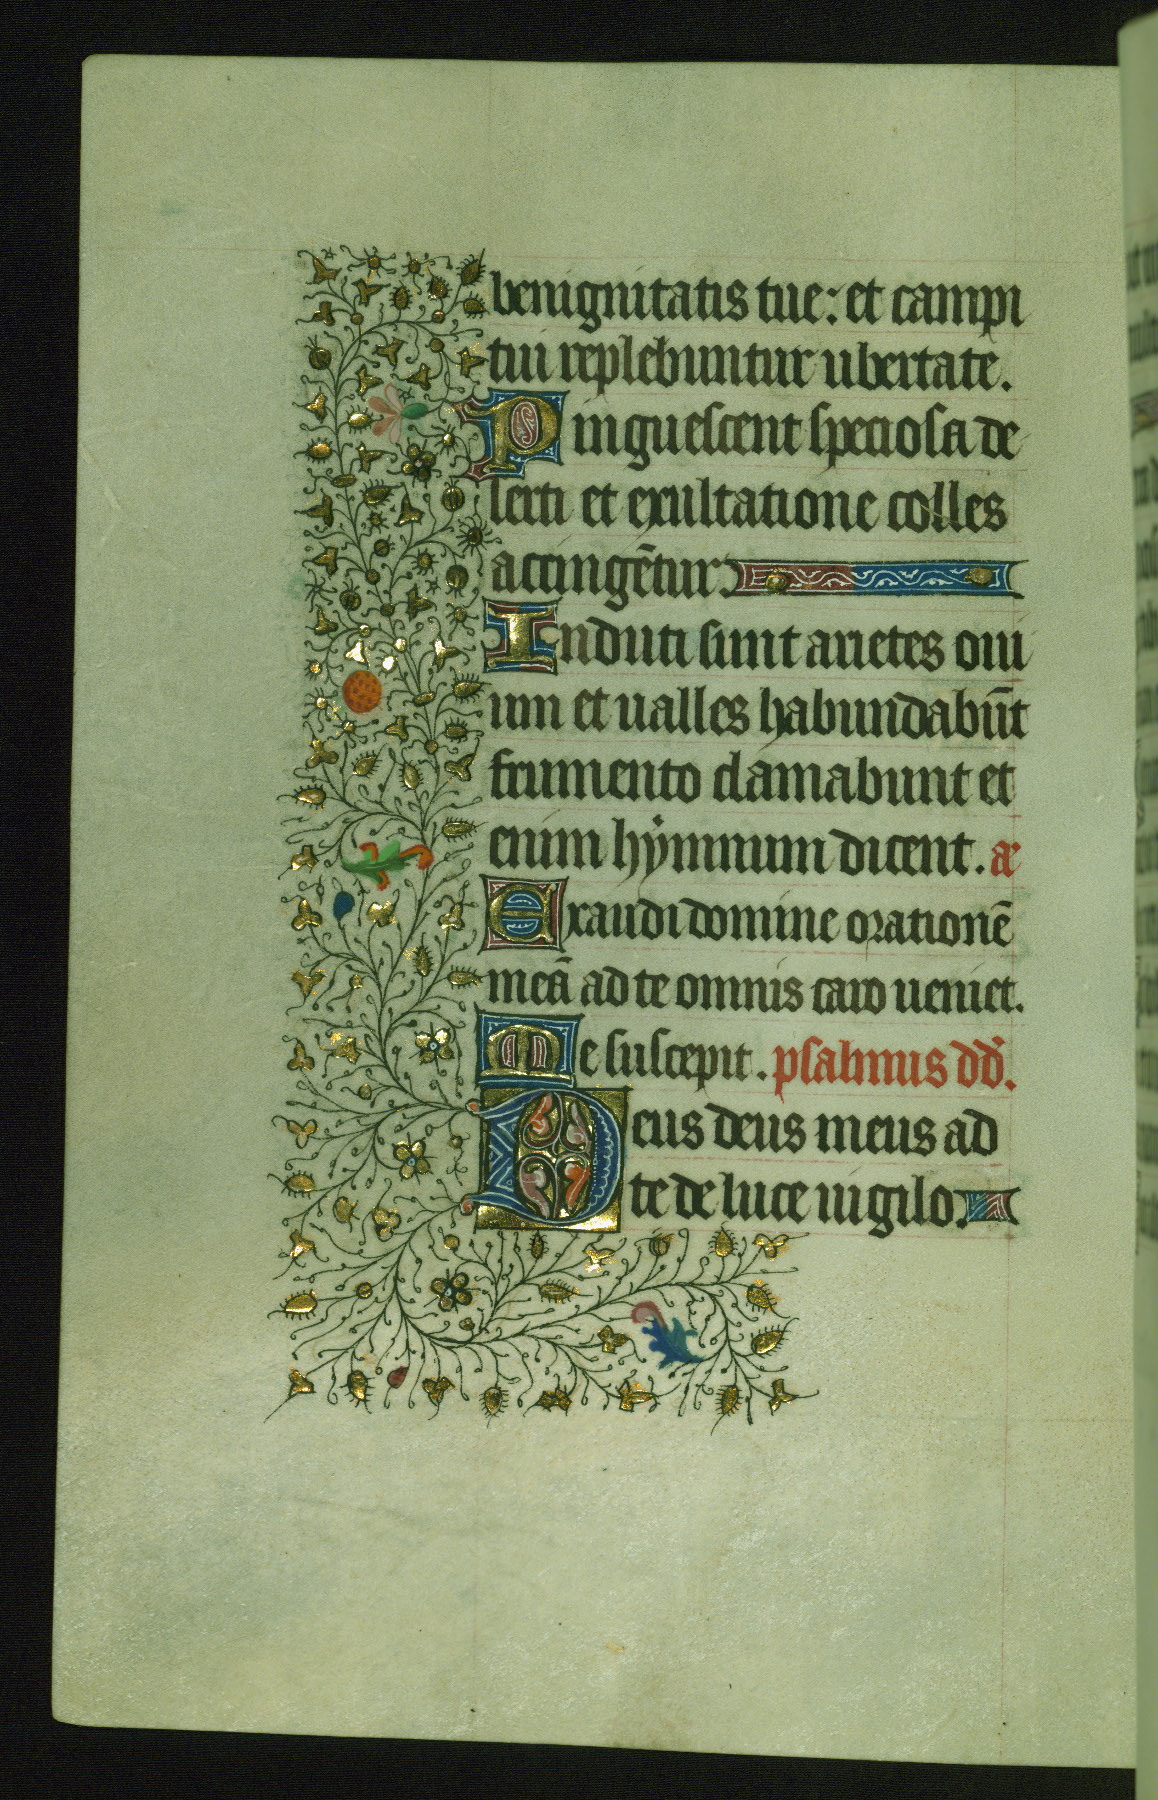 benignitatis tue: et campi
tui replebuntur ubertate.
Pinguescent speciosa de
serti et exultatione colles
accingẽtur.
Induti sunt arietes oui
um et ualles habundabũt
frumento clamabunt et
enim hẏmnum dicent. añ
Exaudi domine orationẽ
meã ad te omnis caro ueniet.
Me suscepit. psalmus dd̃.
Deus deus meus ad
te de luce uigilo.